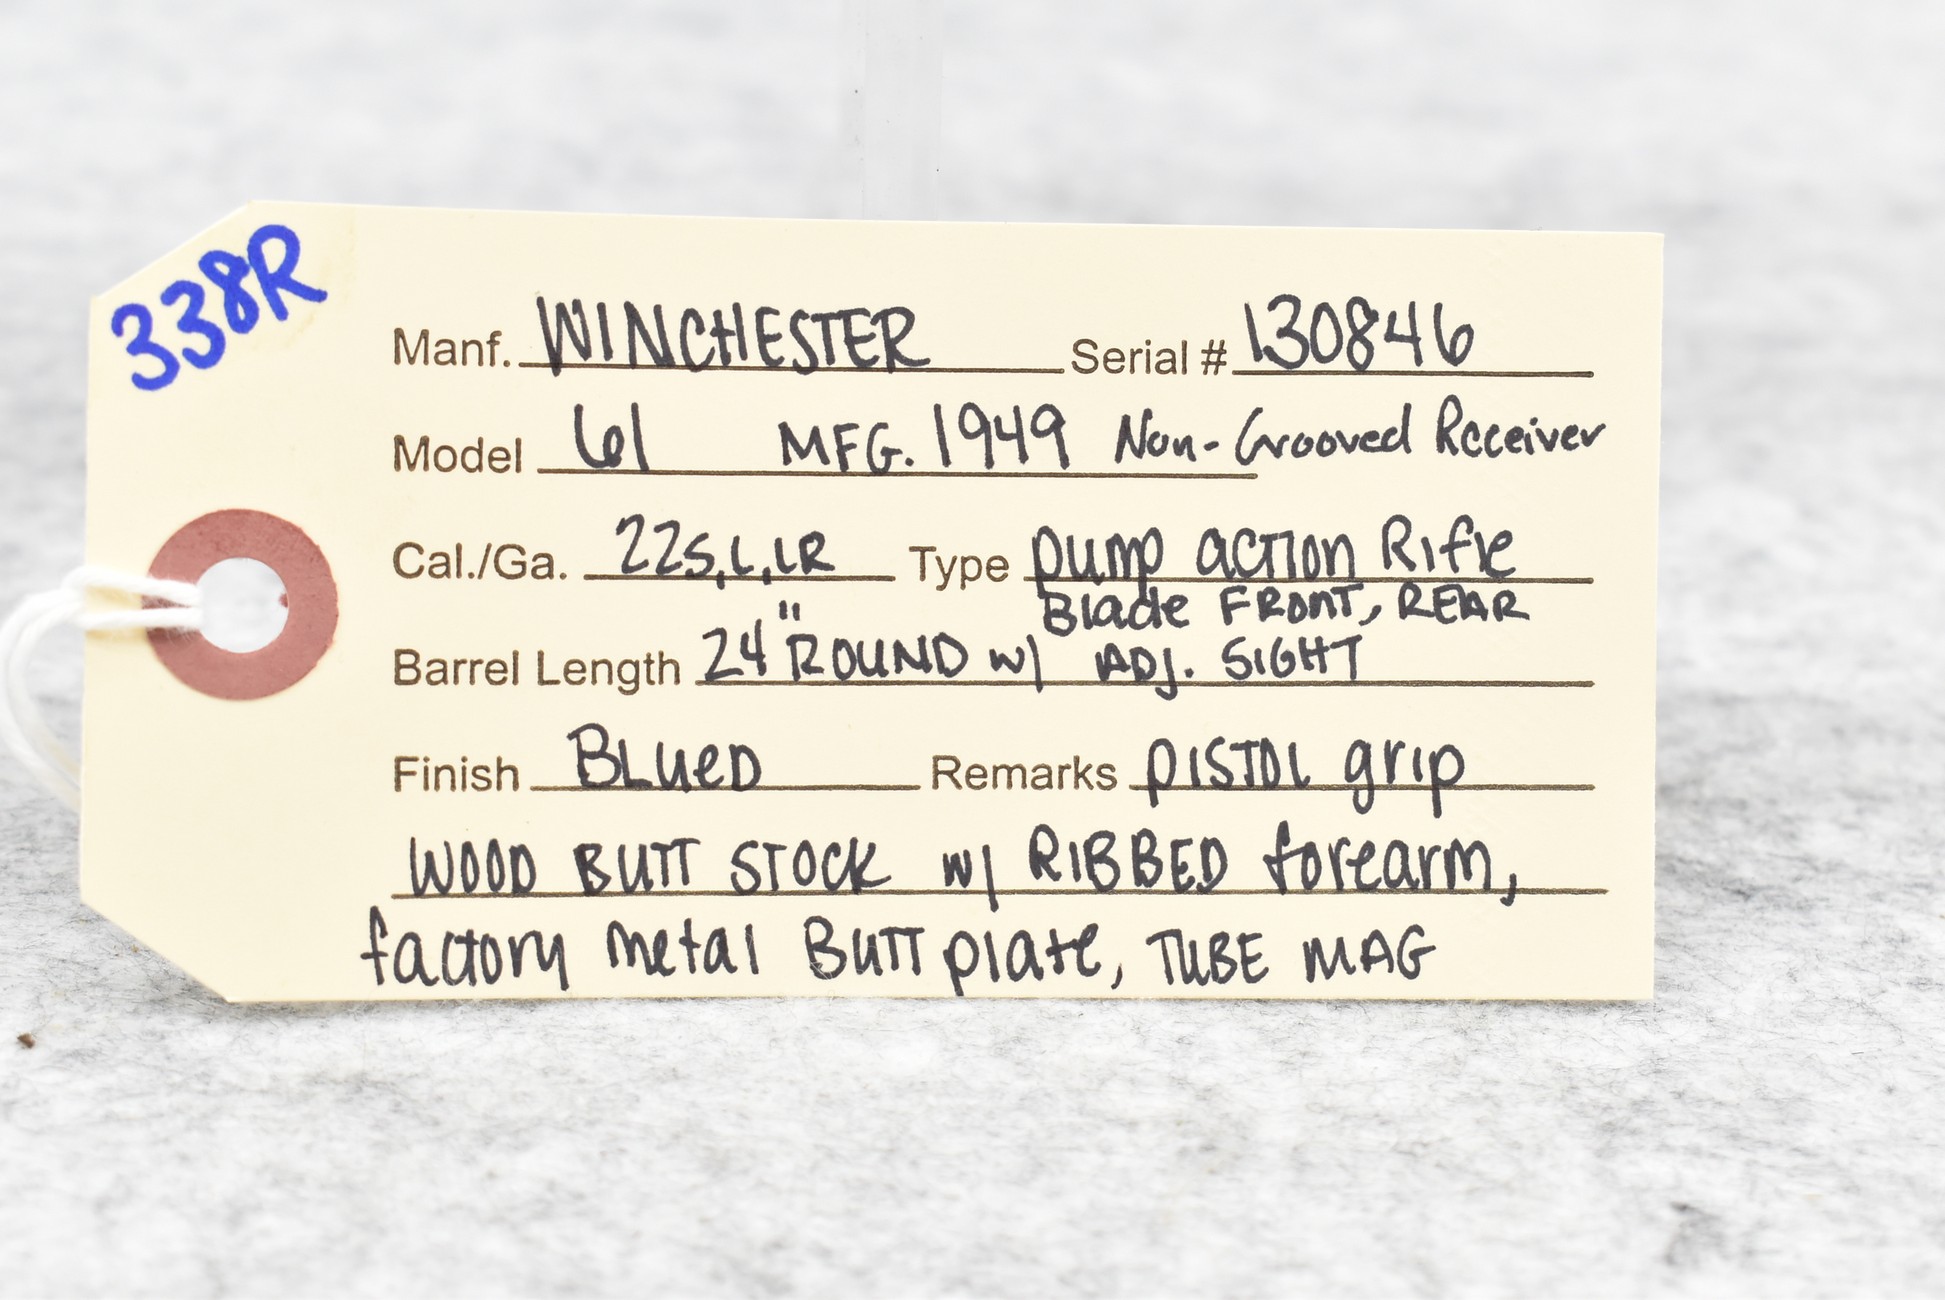 338R
Manf. WINCHESTER Serial # 130846
Model 61 MFG. 1949 Non-Grooved Receiver
Cal./Ga. 22S,L,LR Type pump action Rifle
Blade FRONT, REAR
Barrel Length 24" ROUND w/ ADJ. SIGHT
Finish BLueD Remarks pISTOL grip
WOOD BUTT STOCK w/ RIBBED forearm,
factory metal BUTT plate, TUBE MAG